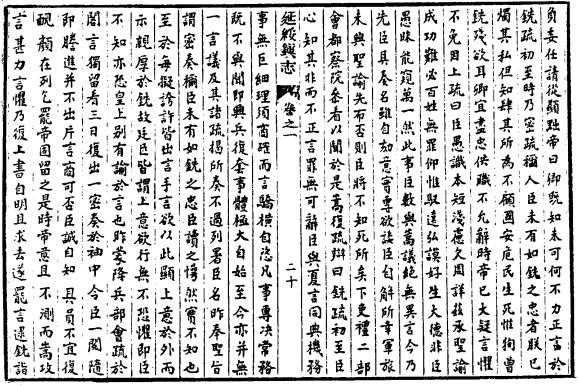 負委任請從顯黜帝曰卿既知未可何不力正言於
銑疏初至時乃密疏稱人臣未有如銑之忠者朕已
燭其私但知肆其所為不顧國安危民生死惟狥曾
銑殘欲耳卿宜盡忠供職不允解時帝已大疑言懼
不免因上疏曰臣愚識本短淺慮欠周詳茲承聖諭
成功難必百姓無罪仰惟馭遠弘謨好生大德非臣
愚昧能窺萬一然此事臣數與嵩議絕無異言今乃
先臣具奏名雖自劾意實專欲諉臣自解所幸軍旅
未興聖諭先布否則臣將不知死所矣下吏禮二部
會都察院叅看以聞於是嵩復疏辯曰銑疏初至臣
心知其非而不正言罪無可辭臣與夏言同典機務
延綏鎮志 卷之一 二十
事無巨細理須商確而言驕橫自恣凡事專决常務
既不與聞即興兵復套事體極大自始至今亦並無
一言議及其諸疏揭所奏不過列署臣名昨奉聖旨
謂密奏稱臣未有如銑之忠臣讀之愕然實不知也
至於每擬誇許皆出言手言欲以此顯上意於外而
示親厚於銑故廷臣皆謂上意欲行無不恐懼即臣
不知亦恐皇上別有諭於言也昨蒙降兵部會疏於
閣言獨留看三日復出一密奏於袖中令臣一閱隨
即騰進并不出片言商可否臣誠自知具員不宜復
醜顏在列乞罷帝固留之是時帝意且不測而嵩攻
言甚力言懼乃復上書自明且求去遂罷言逮銑詣